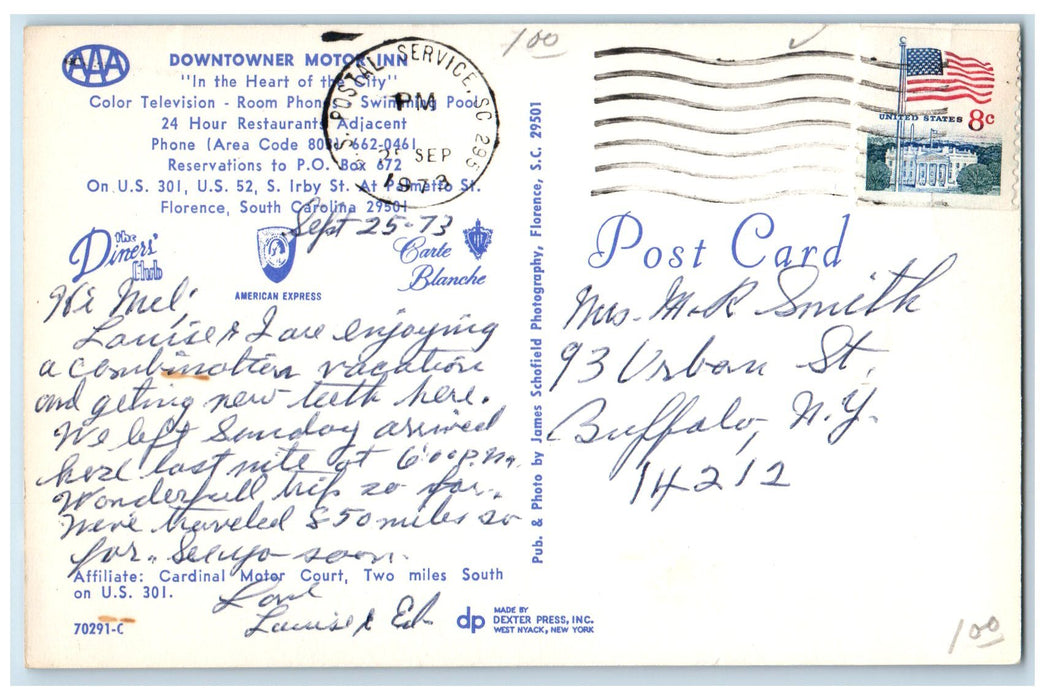 AAA
DOWNTOWNER MOTOR INN
"In the Heart of the City"
Color Television - Room Phones - Swimming Pool
24 Hour Restaurants Adjacent
Phone (Area Code 803) 662-0461
Reservations to P.O. Box 672
On U.S. 301, U.S. 52, S. Irby St. At Palmetto St.
Florence, South Carolina 29501
the Diners' Club
AMERICAN EXPRESS
Carte Blanche
Sept 25-73
Hi Mel,
Louise & I are enjoying
a combination vacation
and geting new teeth here.
We left Sunday arrived
here last nite at 6:00 p.m.
Wonderfull trip so far.
Weve traveled 850 miles so
far. See yo soon.
Affiliate: Cardinal Motor Court, Two miles South
on U.S. 301.
Love
Louise & Ed
70291-C
dp MADE BY
DEXTER PRESS, INC.
WEST NYACK, NEW YORK
Pub. & Photo by James Schofield Photography, Florence, S.C. 29501
U.S. POSTAL SERVICE, SC 295
PM
SEP
1973
1 00
UNITED STATES 8c
Post Card
Mrs. M.R Smith
93 Urban St.
Buffalo, N.Y.
14212
1 00